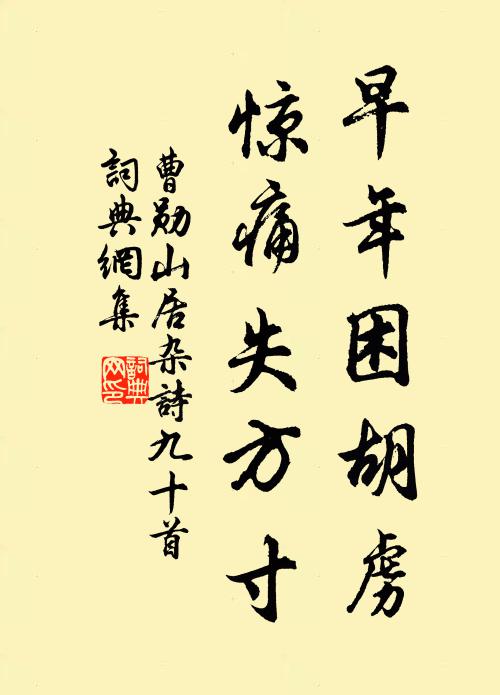 早年困胡虏
惊痛失方寸
曹勋山居杂詩九十首
詞典網集
詞典網印